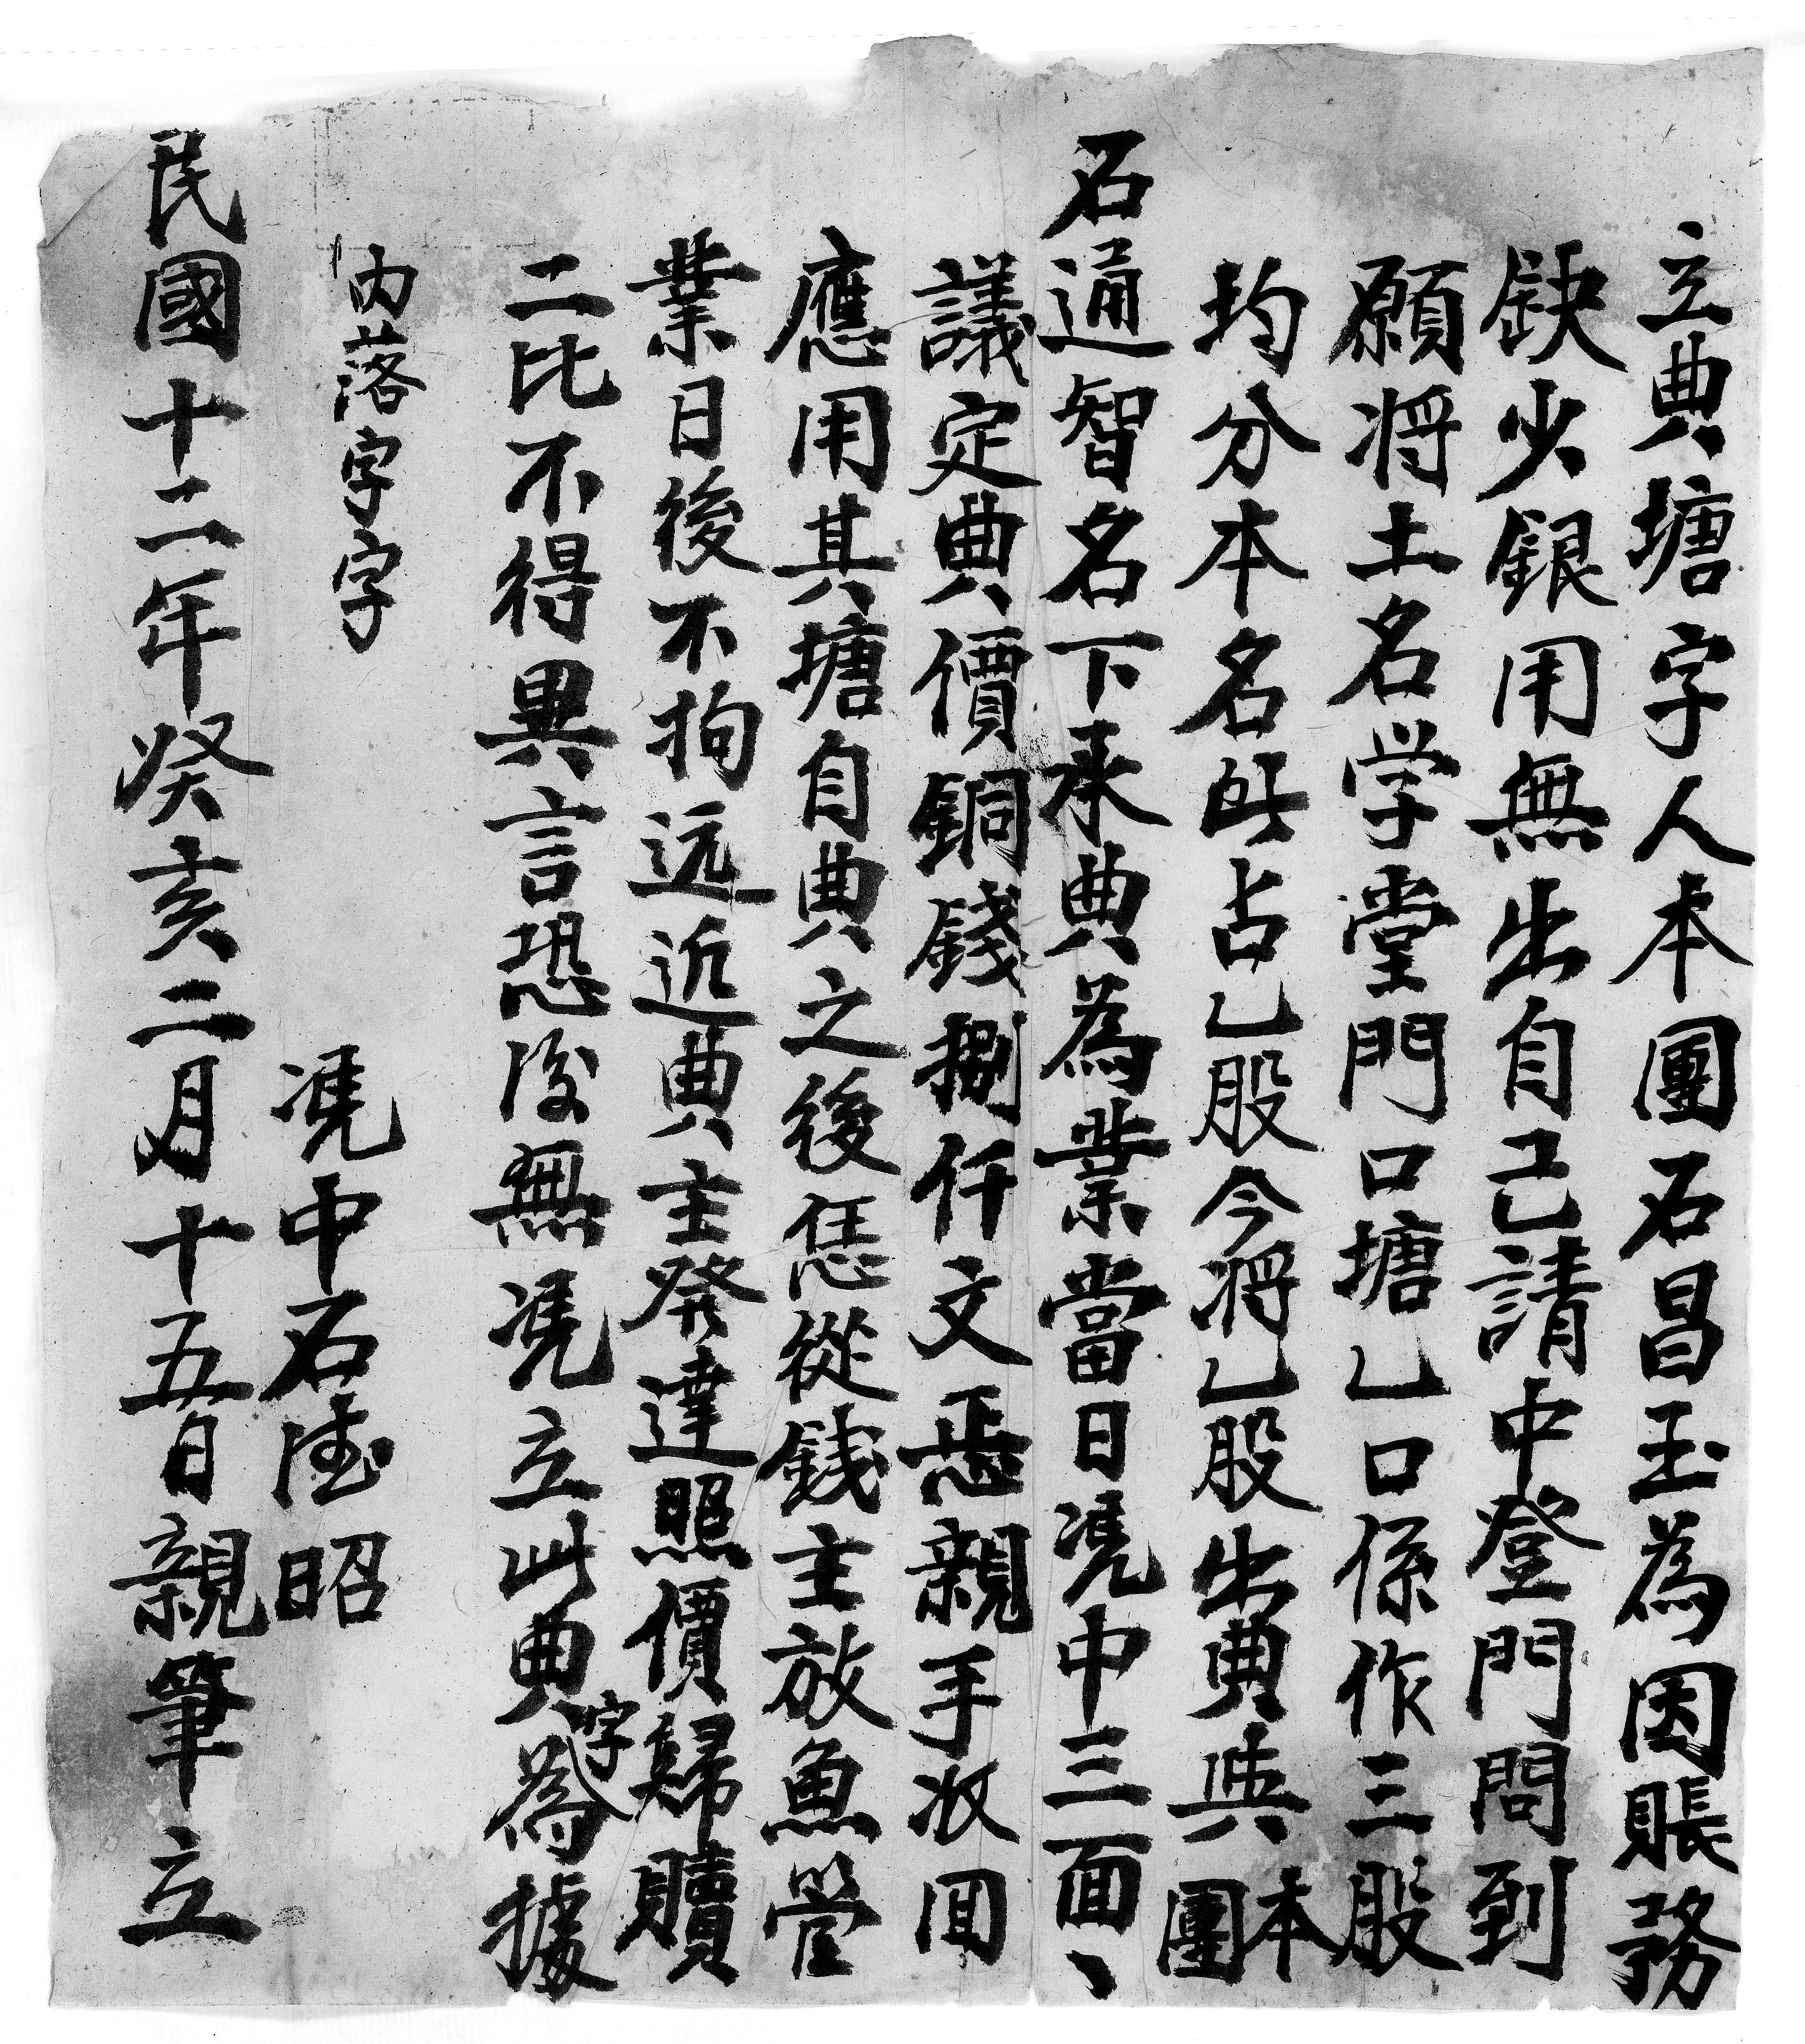 立典塘字人本團石昌玉為因賬務
缺少銀用無出自己請中登門問到
願将土名学堂門口塘乙口係作三股
均分本名所占乙股今将乙股出典與本團
石通智名下承典為業當日凴中三面、
議定典價銅錢捌仟文恁親手收回
應用其塘自典之後恁從錢主放魚管
業日後不拘远近典主發達照價歸贖
二比不得異言恐後無凴立此典字為據
内落字字
凴中石德昭
民國十二年癸亥二月十五日親筆立